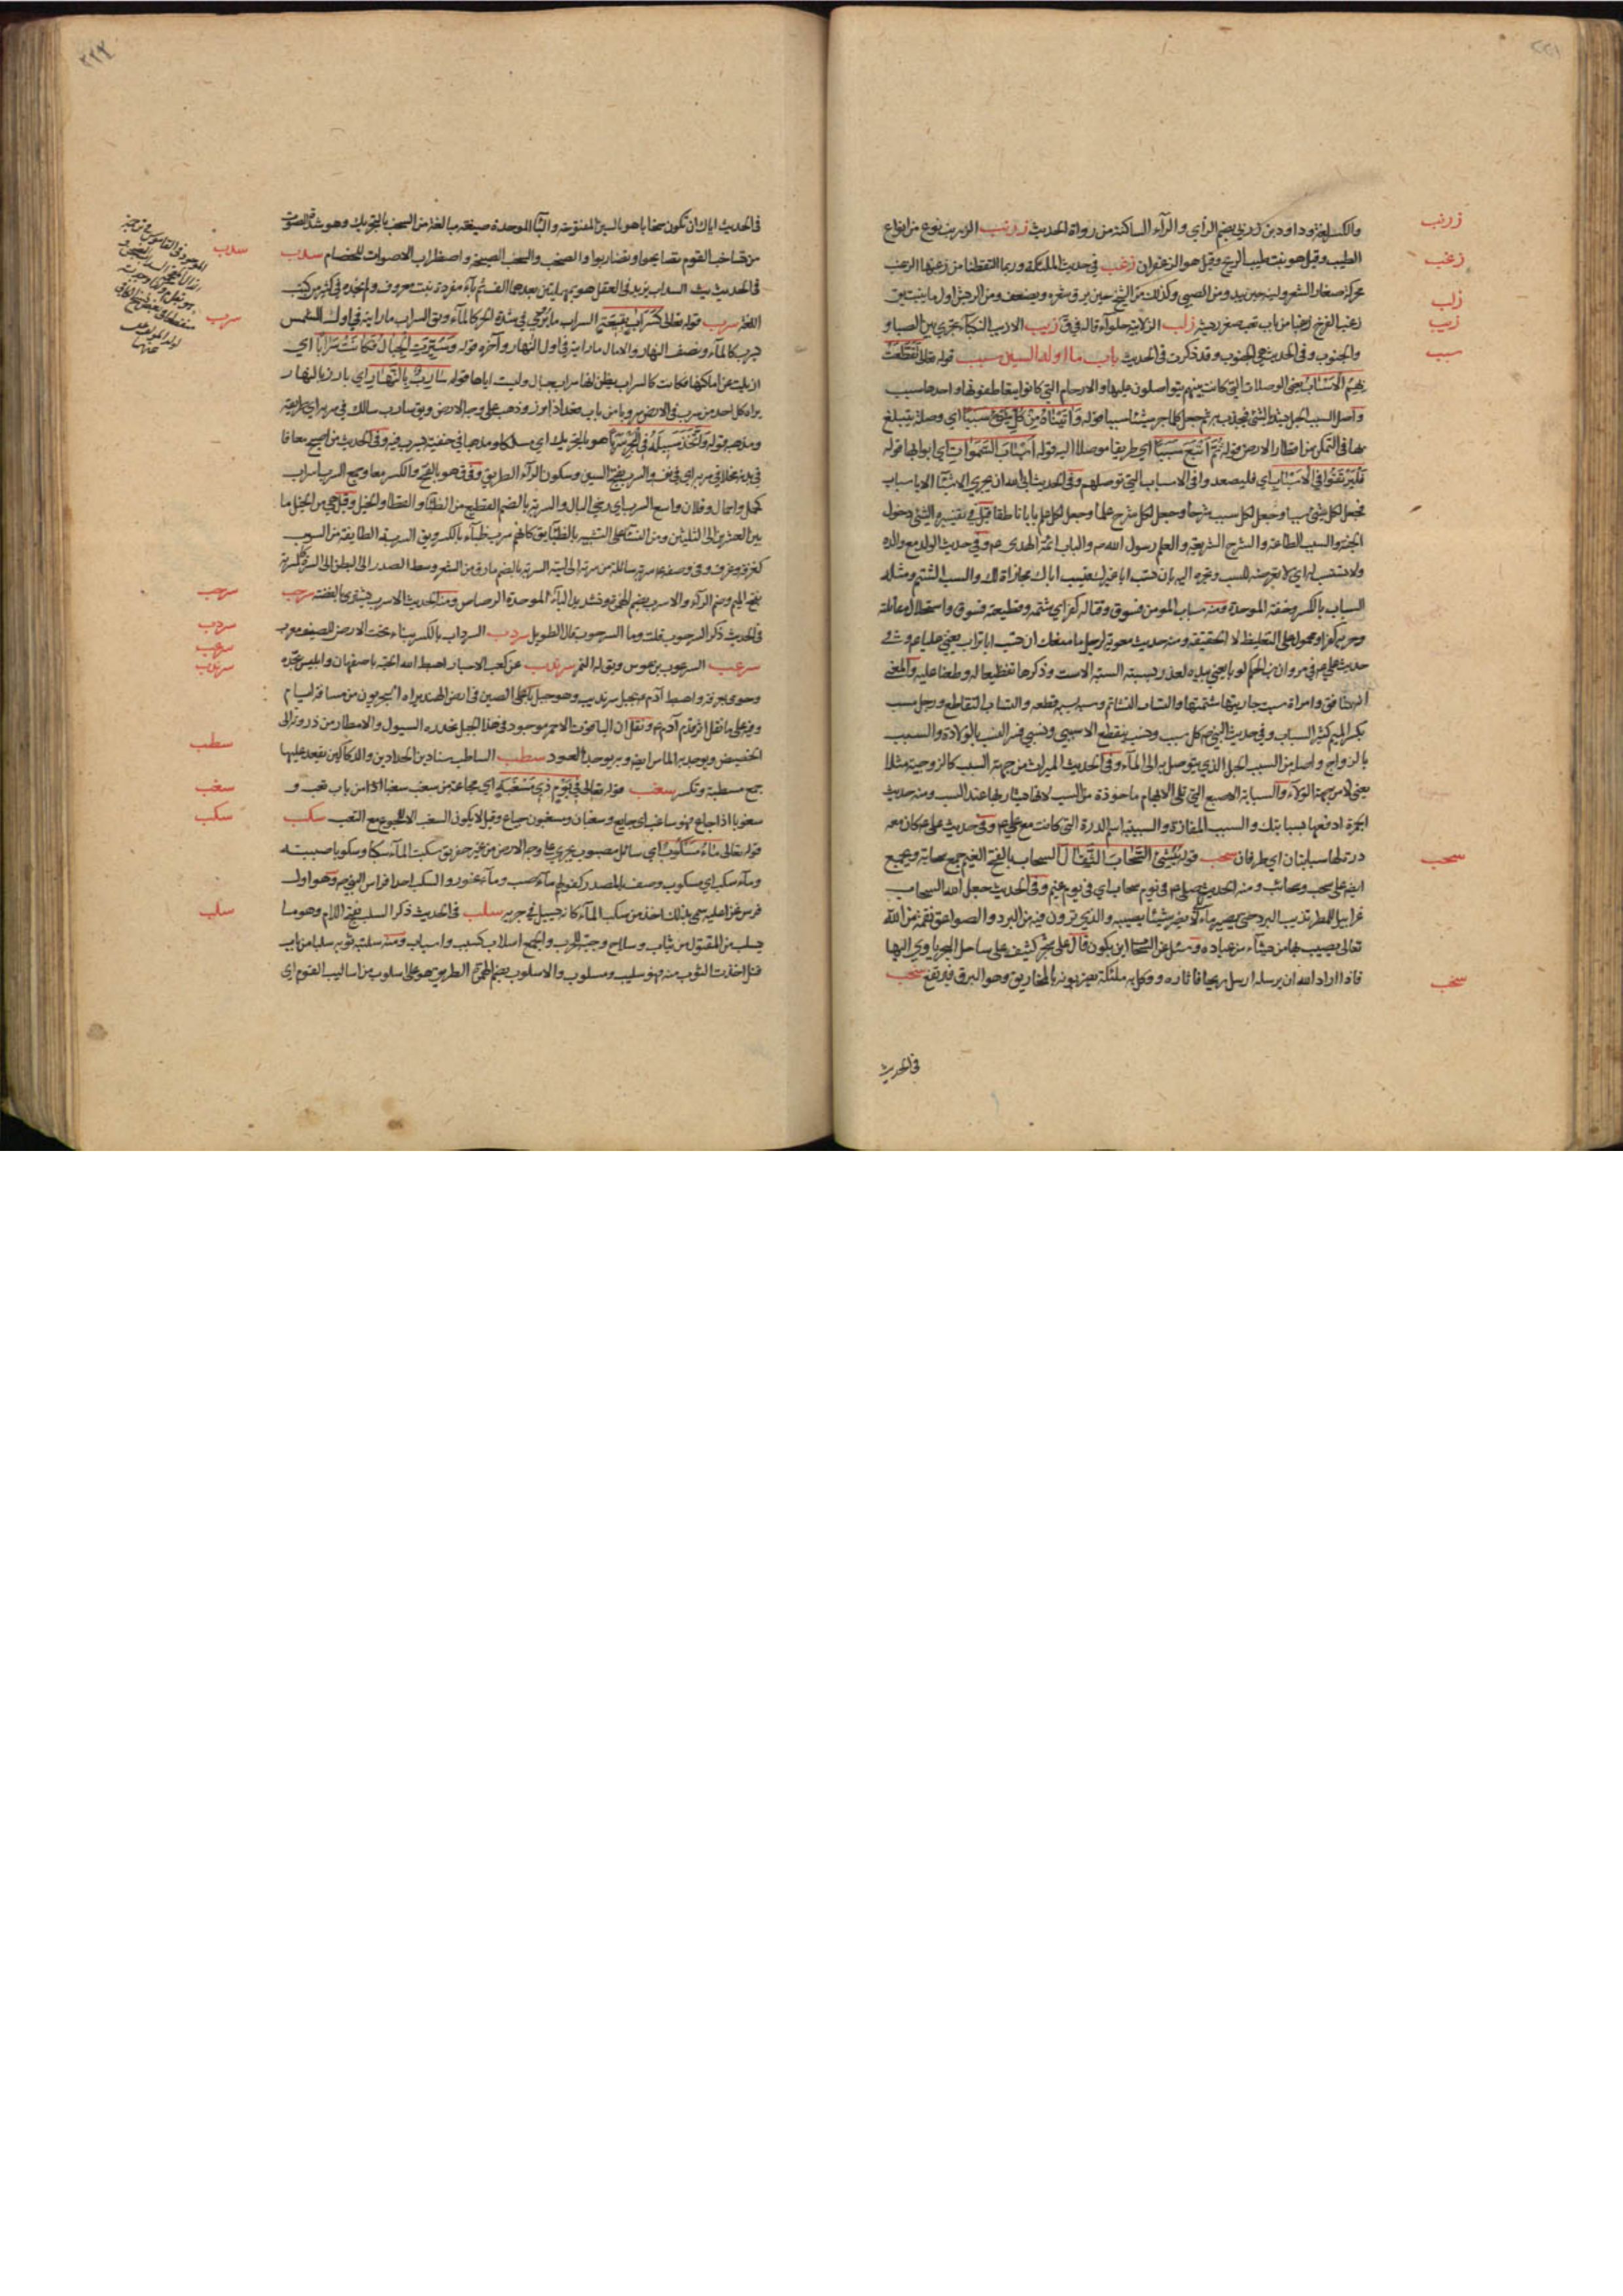 والكسر لغة وداود بن زربى بضم الزاي والراء الساكنة من رواة الحديث زرنب الزرنب نوع من انواع
الطيب وقيل هو نبت طيب الريح وقيل هو الزعفران زغب في حديث الملئكة وربما التقطنا من زغبها الزغب
محركة صغار الشعر ولينه حين يبدو من الصبي وكذلك من الشيخ حين يرق شعره ويضعف ومن الريش اول ما ينبت يق
زغب الفرخ زغبا من باب تعب صغر ريشه زلب الزلابية حلواء قاله في ق زيب الازيب النكباء تجري بين الصبا و
والجنوب وفي الحديث هي الجنوب وقد ذكرت في الحديث باب ما اوله السين سبب قوله تعالى تقطعت
بهم الاسباب يعني الوصلات التي كانت بينهم يتواصلون عليها والارحام التي كانوا يتعاطفون بها واحدها سبب
واصل السبب الحبل يشد بالشئ فيجذب به ثم جعل كلما جر شيئا سببا قوله وآتيناه من كل شئ سببا اي وصلة يتبلغ
بها في التمكن من اقطار الارض قوله ثم اتبع سببا اي طريقا موصلا اليه قوله اسباب السموات اي ابوابها قوله
فليرتقوا في الاسباب اي فليصعدوا في الاسباب التي توصلهم وفي الحديث ابى الله ان يجري الاشيآ الا باسباب
فجعل لكل شئ سببا وجعل لكل سبب شرحا وجعل لكل شرح علما وجعل لكل علم بابا ناطقا قيل في تفسيره الشئ دخول
الجنة والسبب الطاعة والشرح الشريعة والعلم رسول الله ص والباب ائمة الهدى ع وفي حديث الولد مع والده
ولا يستسب له اي لا يعرضه للسب ويجره اليه بان يسب ابا غيرك فيسب اباك مجازاة لك والسب الشتم ومثله
السباب بالكسر وخفة الموحدة ومنه سباب المومن فسوق وقتاله كفر اي شتمه وقطيعته فسوق واستحلال مقاتلته
وحربه كفر او محمول على التغليظ لا الحقيقة ومنه حديث معوية لرجل ما منعك ان تسب ابا تراب يعني عليا ع وفي
بكسر الميم كثير السباب وفي حديث النبي ص كل سبب ونسب ينقطع الا سببي ونسبي فسر النسب بالولادة والسبب
بالزواج واصله من السبب الحبل الذي يتوصل به الى المآء وفي الحديث الميراث من جهة السبب كالزوجية مثلا
يعني لا من جهة الولاء والسبابة الاصبع التي تلي الابهام ماخوذة من السب لانها يشار بها عند السب ومنه حديث
درة لها سبلبتان اي طرفان سحب قوله ينشئ السحاب الثقال السحاب بالفتح الغيم جمع سحابة ويجمع
ايضا على سحب وسحائب ومنه الحديث يوم سحاب اي في يوم غيم وفي الحديث جعل الله السحاب
غرابيل للمطر تذيب البرد حتى يصير ماء لا يضر شيئا يصيبه والذي ترون فيه من البرد والصواعق نقمة من الله
تعالى يصيب بها من يشآء من عباده وسئل عن السحاب اين يكون قال على شجر كثيف على ساحل البحر ياوي اليها
فاذا اراد الله ان يرسله ارسل ريحا فاثاره ووكل به ملئكة يضربونه بالمخاريق وهو البرق فيرتفع سخب
في الحديث
زرنب
زغب
زلب
زيب
سبب
سحب
سخب
٢٢١
٢٢٢
في الحديث اياك ان تكون سخابا هو بالسين المفتوحة والبآء الموحدة صيغة مبالغة من السخب بالتحريك وهو شدة الصوت
من تصاخب القوم تصايحوا وتضاربوا والصخب والسخب الصيحة واضطراب الاصوات للخصام سدب
في الحديث السداب يزيد في العقل هو بمهملتين بعدهما الف ثم بآء مفردة نبت معروف ولم نجده في كثير من كتب
اللغة سرب قوله تعالى كسراب بقيعة السراب ما ترى في شدة الحر كالمآء ويق السراب ما رايته في اول الشمس
يسرب كالمآء ونصف النهار والال ما رايته في اول النهار وآخره قوله وسيرت الجبال فكانت سرابا اي
ازيلت عن اماكنها فكانت كالسراب يظن انها سراب جبال وليست اياها قوله سارب بالنهار اي بارز بالنهار
يراه كل احد من سرب في الارض سروبا من باب قعد اذا برز وذهب على وجه الارض ويق سارب سالك في سربه اي طريقه
ومذهبه قوله واتخذ سبيله في البحر سربا هو بالتحريك اي مسلكا ومذهبا في خفية يسرب فيه وفي الحديث من اصبح معافا
في بدنه مخلا في سربه اي في نفسه والسرب بفتح السين وسكون الراء الطريق وفي ق هو بالفتح والكسر معا وجمع السرب اسراب
كحمل واحمال وفلان واسع السرب اي رخي البال والسربة بالضم القطيع من الظبآء والقطا والخيل وقيل هي من الخيل ما
بين العشرين الى الثلاثين ومن النسآء على التشبيه بالظبآء يق كانهم سرب ظبآء بالكسر ويق السربة الطايفة من السرب
كغرفة وغرف وفي وصفه ص سربة سائلة من سرته الى لبته السربة بالضم ما دق من الشعر وسط الصدر الى البطن الى السرة كسربة
بفتح الميم وضم الراء والاسرب بضم الهمزة وتشديد الباء الموحدة الرصاص ومنه الحديث الاسرب يشترى بالفضة سرحب
في الحديث ذكر السرحوب قلت وما السرحوب قال الطويل سردب السرداب بالكسر بناء تحت الارض للصيف معرب
سرعب السرعوب بن عرس ويق له النمر سرندب عن كعب الاحبار اهبط الله الحية باصفهان وابليس بجدة
وحوى بعرفة واهبط آدم ع بجبل سرنديب وهو جبل باعلى الصين في ارض الهند يراه البحريون من مسافة ايام
وفيه على ما نقل اثر قدم آدم ع ونقل ان الياقوت الاحمر موجود في هذا الجبل تحدره السيول والامطار من ذروته الى
الحضيض ويوجد به الماس ايضا وبه يوجد العود سطب المساطب سنادين الحدادين والدكاكين يقعد عليها
جمع مسطبة وتكسر سغب قوله تعالى في يوم ذي مسغبة اي مجاعة من سغب سغبا اذا من باب تعب و
سغوبا اذا جاع فهو ساغب اي جايع وسغبان ومسغبون جياع وقيل لا يكون السغب الا الجوع مع التعب سكب
قوله تعالى ماء مسكوب اي سائل مصبوب يجري على وجه الارض من غير حفر يق سكبت المآء سكبا وسكوبا صببته
ومآء سكب اي مسكوب وصف بالمصدر كقولهم مآء صب ومآء غور والسكب احد افراس النبي ص وهو اول
فرس غزا عليه سمي بذلك اخذ من سكب المآء كانه يسيل في جريه سلب في الحديث ذكر السلب بفتح اللام وهو ما
يسلب من المقتول من ثياب وسلاح وجبة للحرب والجمع اسلاب كسبب واسباب ومنه سلبته ثوبه سلبا من باب
قتل اخذت الثوب منه فهو سليب ومسلوب والاسلوب بضم الهمزة الطريق هو على اسلوب من اساليب القوم اي
سدب
سرب
سرحب
سردب
سرعب
سرندب
سطب
سغب
سكب
سلب